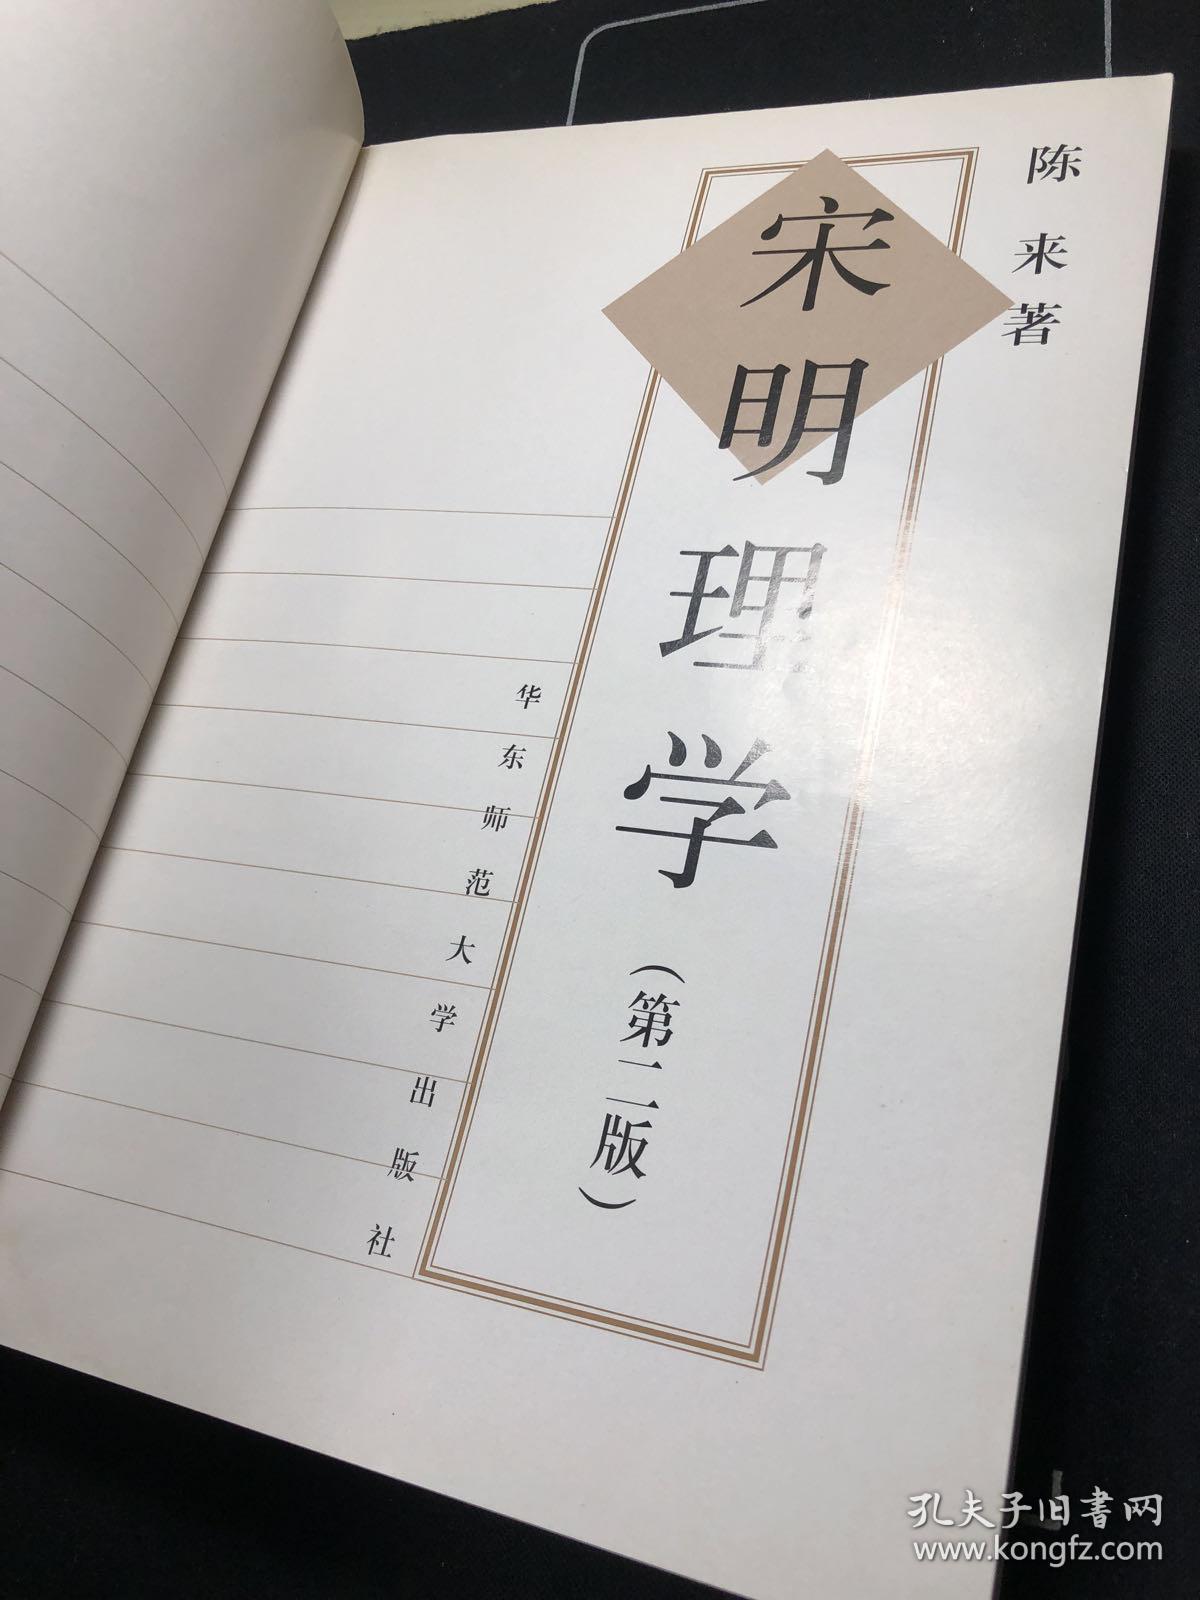 陈来著
宋明理学
(第二版)
华东师范大学出版社
孔夫子旧书网
www.kongfz.com